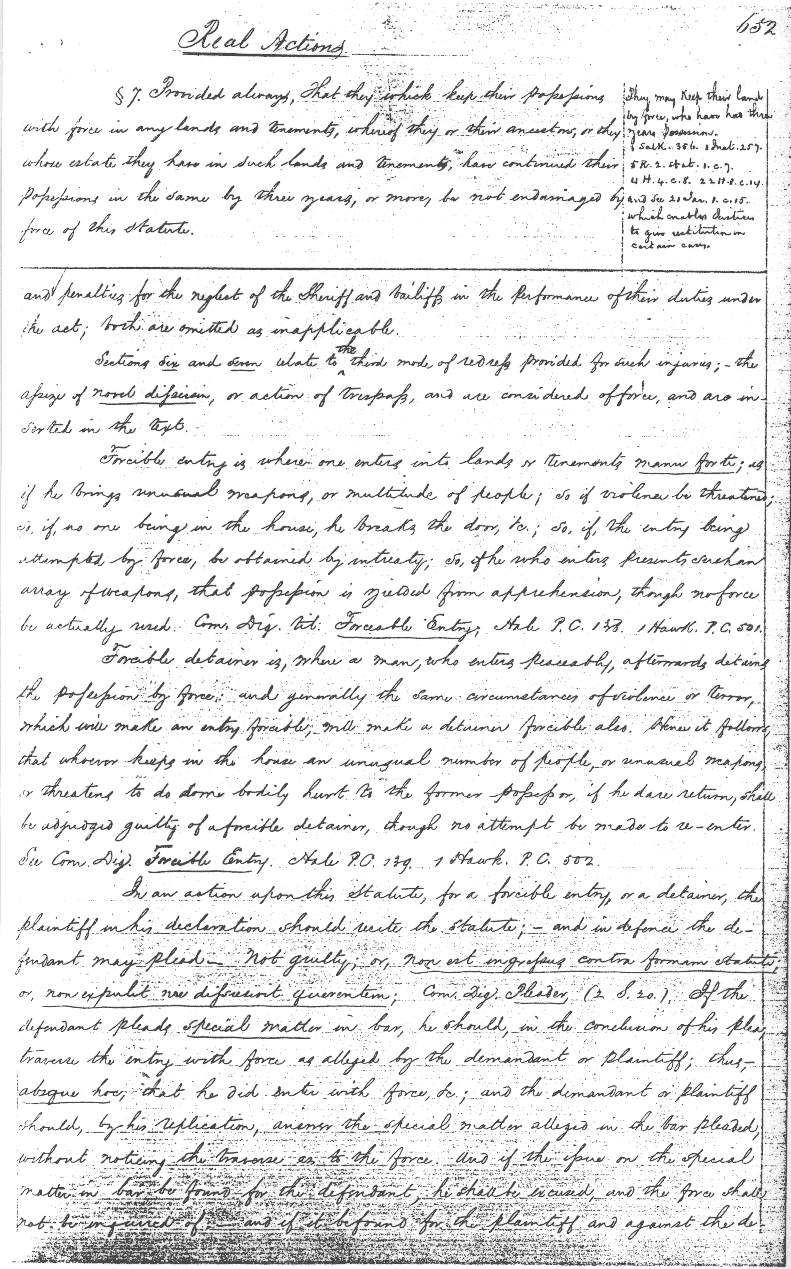 652
Real Actions.
§ 7. Provided always, That they which keep their possessions
with force in any lands and tenements, whereof they or their ancestors, or they
whose estate they have in such lands and tenements, have continued their
possessions in the same by three years, or more, be not endamaged by
force of this statute.
They may keep their land
by force, who have had three
years possession.
1 Salk. 356. 1 Inst. 257.
5 R. 2. Stat. 1. c. 7.
4 H. 4. c. 8. 22 H. 8. c. 14.
and See 21 Jac. 1. c. 15.
which enables Justices
to give restitution in
certain cases.
and penalties for the neglect of the Sheriff and bailiff in the performance of their duties under
the act; both are omitted as inapplicable.
Sections six and seven relate to the third mode of redress provided for such injuries; – the
assize of novel disseisin, or action of trespass, and are considered of force, and are in-
serted in the text.
Forcible entry is where one enters into lands or tenements manu forti; as
if he brings unusual weapons, or multitude of people; so if violence be threatened;
so, if, no one being in the house, he breaks the door, &c.; so, if, the entry being
attempted by force, be obtained by intreaty; so, if he who enters presents such an
array of weapons, that possession is yielded from apprehension, though no force
be actually used. Com. Dig. tit. Forceable Entry; Hale P.C. 138. 1 Hawk. P.C. 501.
Forcible detainer is, where a man, who enters peaceably, afterwards detains
the possession by force; and generally the same circumstances of violence or terror,
which will make an entry forcible, will make a detainer forcible also. Hence it follows,
that whoever keeps in the house an unusual number of people, or unusual weapons,
or threatens to do dome bodily hurt to the former possessor, if he dare return, shall
be adjudged guilty of a forcible detainer, though no attempt be made to re-enter.
See Com. Dig. Forcible Entry. Hale P.C. 139. 1 Hawk. P.C. 502.
In an action upon this statute, for a forcible entry, or a detainer, the
plaintiff in his declaration should recite the statute; – and in defence the de-
fendant may plead – Not guilty; or, non est ingressus contra formam statuti;
or, non expulit nec disseisivit querentem; Com. Dig. Pleader, (2 S. 20.), If the
defendant pleads special matter in bar, he should, in the conclusion of his plea,
traverse the entry with force as alleged by the demandant or plaintiff; thus, –
absque hoc, that he did enter with force, &c.; and the demandant or plaintiff
should, by his replication, answer the special matter alleged in the bar pleaded,
without noticing the traverse as to the force. And if the issue on the special
matter in bar be found for the defendant, he shall be excused, and the force shall
not be inquired of – and if it be found for the plaintiff and against the de-